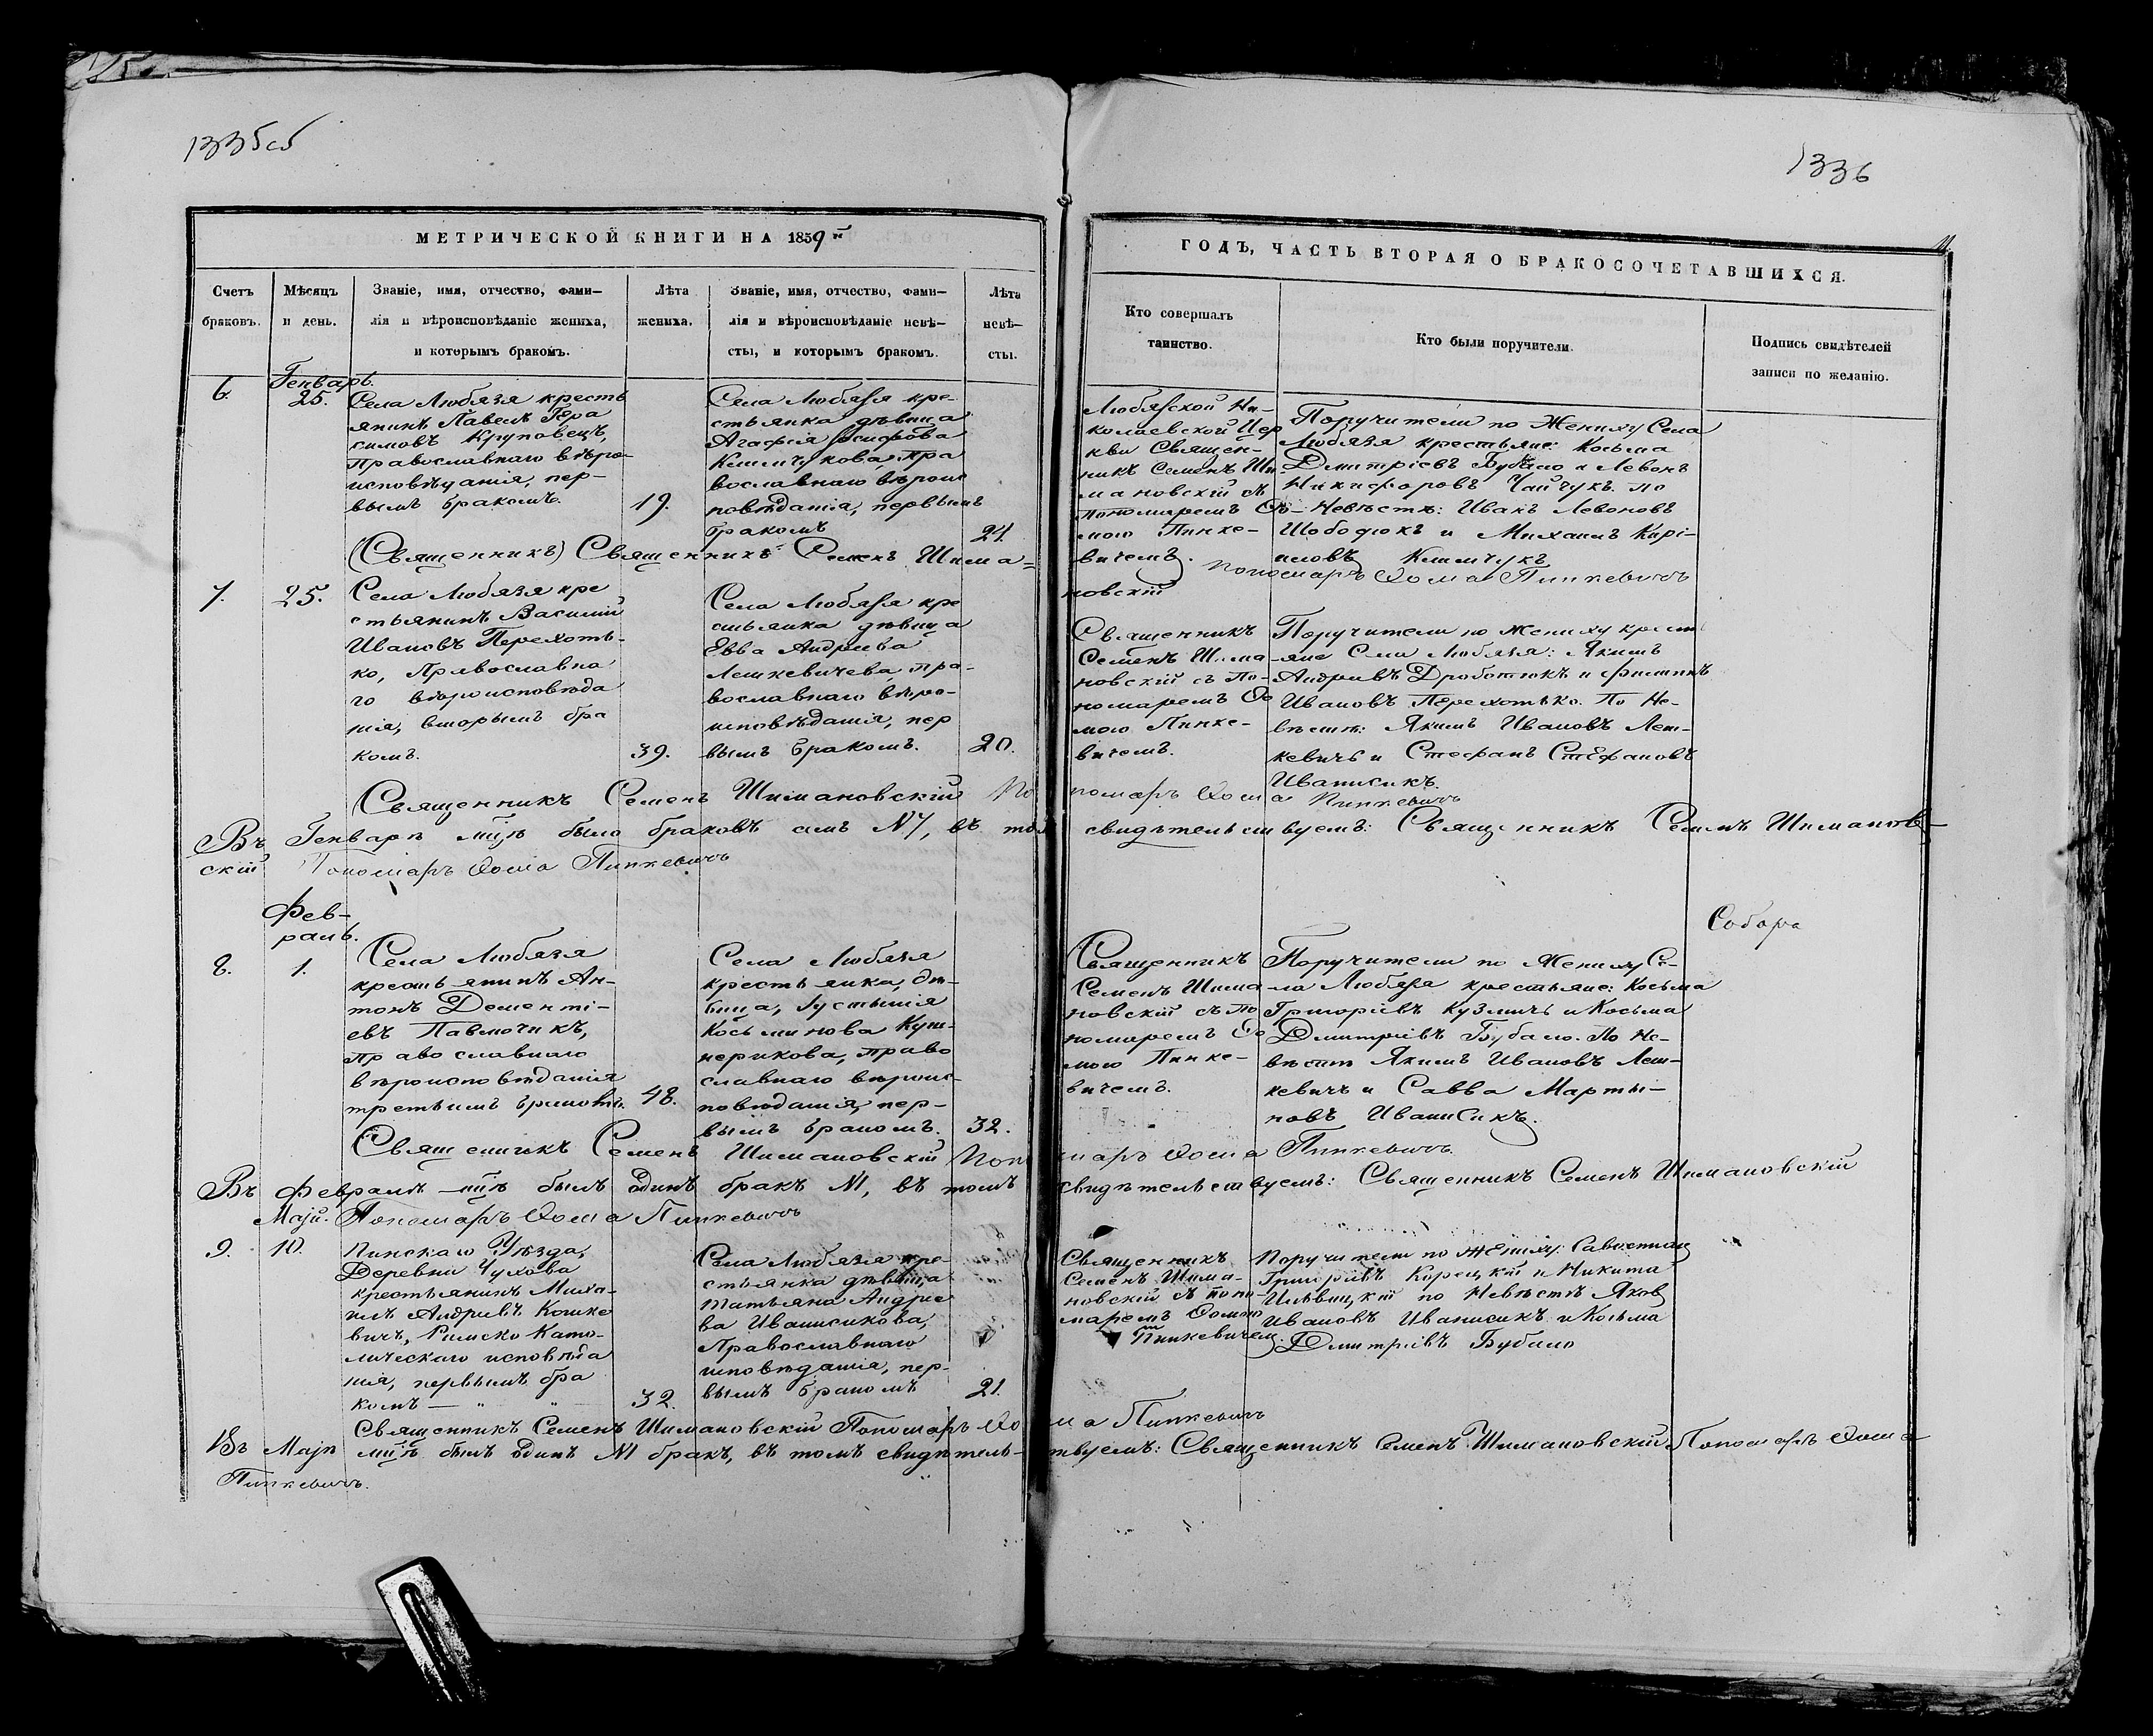 1335об
1336
МЕТРИЧЕСКОЙ КНИГИ НА 1859й
ГОДЪ, ЧАСТЬ ВТОРАЯ О БРАКОСОЧЕТАВШИХСЯ.
11.
Счетъ
браковъ.
Мѣсяцъ
и день.
Званіе, имя, отчество, фами–
лія и вѣроисповѣданіе жениха,
и которымъ бракомъ.
Лѣта
жениха.
Званіе, имя, отчество, фами–
лія и вѣроисповѣданіе невѣ–
сты, и которымъ бракомъ.
Лѣта
невѣ–
сты.
Кто совершалъ
таинство.
Кто были поручители.
Подпись свидѣтелей
записи по желанію.
6.
Генварь.
25.
Села Любязя кресть
янинъ Павелъ Гера
симовъ Круповецъ,
православнаго вѣро-
исповѣданія, пер-
вымъ бракомъ.
19.
Села Любязя кре-
стьянка дѣвица
Агафія Іосифова
Климчукова, пра
вославнаго вѣроис
повѣданія, первымъ
бракомъ
21.
Любязской Ни-
колаевской Цер
кви Священ-
никъ Семенъ Ши-
мановскій съ
пономаремъ Ѳо-
мою Пинке-
вичемъ.
Поручители по Жениху Села
Любязя крестьяне: Косьма
Дмитріевъ Бубало и Левонъ
Никифоровъ Чайчукъ. по
Невѣстѣ: Иванъ Левоновъ
Шободюкъ и Михаилъ Кирі-
ловъ Климчукъ
(Священникъ) Священникъ Семенъ Шима=
новскій
пономарь Ѳома Пинкевичъ
7.
25.
Села Любязя кре
стьянинъ Василій
Ивановъ Перехоть-
ко, Православна
го вѣроисповѣда
нія, вторымъ бра
комъ.
39.
Села Любязя кре
стьянка дѣвица
Евва Андреева
Лешкевичева, пра-
вославнаго вѣро-
исповѣданія, пер
вымъ бракомъ.
20.
Священникъ
Семенъ Шима
новскій съ По-
номаремъ Ѳо
мою Пинке-
вичемъ.
Поручители по жениху крестья
-яне Села Любязя: Якимъ
Андреевъ Дроботюкъ и Филиппъ
Ивановъ Перехотько. По Не-
вѣстѣ: Якимъ Ивановъ Леш-
кевичъ и Стефанъ Стефановъ
Иванисикъ.
Священникъ Семенъ Шимановскій По
номарь Ѳома Пинкевичъ
Въ Генварѣ мцѣ было браковъ семь N7, въ томъ свидѣтельствуемъ: Священникъ Семенъ Шиманов-
скій Пономарь Ѳома Пинкевичъ
Фев-
раль.
Собора
8.
1.
Села Любязя
крестьянинъ Ан-
тонъ Дементі-
евъ Павлючикъ,
православнаго
вѣроисповѣданія
третьимъ бракомъ.
48.
Села Любязя
крестьянка, дѣ-
вица, Іустинія
Косьминова Куш-
нерикова, право
славнаго вѣроис-
повѣданія, пер-
вымъ бракомъ.
32.
Священникъ
Семенъ Шима
новскій съ По
номаремъ Ѳо
мою Пинке-
вичемъ.
Поручители по Жениху Се-
ла Любязя крестьяне: Косьма
Григоріевъ Кузмичъ и Косьма
Дмитріевъ Бубало. По Не-
вѣстѣ Якимъ Ивановъ Леш-
кевичъ и Савва Марты-
новъ Иванисикъ.
Священникъ Семенъ Шимановскій Пономарь Ѳома Пинкевичъ.
Въ Февралѣ мцѣ былъ одинъ бракъ N1, въ томъ свидѣтельствуемъ: Священникъ Семенъ Шимановскій
Пономарь Ѳома Пинкевичъ
Маій.
9.
10.
Пинскаго Уѣзда,
Деревни Чухова
крестьянинъ Миха-
илъ Андреевъ Кошке
вичъ, Римско Като-
лическаго исповѣда
нія, первымъ бра
комъ
32.
Села Любязя кре-
стьянка дѣвица
Татьяна Андрее
ва Иванисикова,
Православнаго
исповѣданія, пер-
вымъ бракомъ
21.
Священникъ
Семенъ Шима-
новскій съ поно-
маремъ Ѳомою
Пинкевичемъ.
Поручители по Жениху:
Григоріевъ Корецкій и Никита
по Невѣстѣ Яковъ
Ивановъ Иванисикъ и Косьма
Дмитріевъ Бубало
Священникъ Семенъ Шимановскій Пономарь Ѳома Пинкевичъ
Въ Маіѣ мцѣ былъ одинъ N1 бракъ, въ томъ свидѣтельствуемъ: Священникъ Семенъ Шимановскій Пономарь Ѳома
Пинкевичъ.